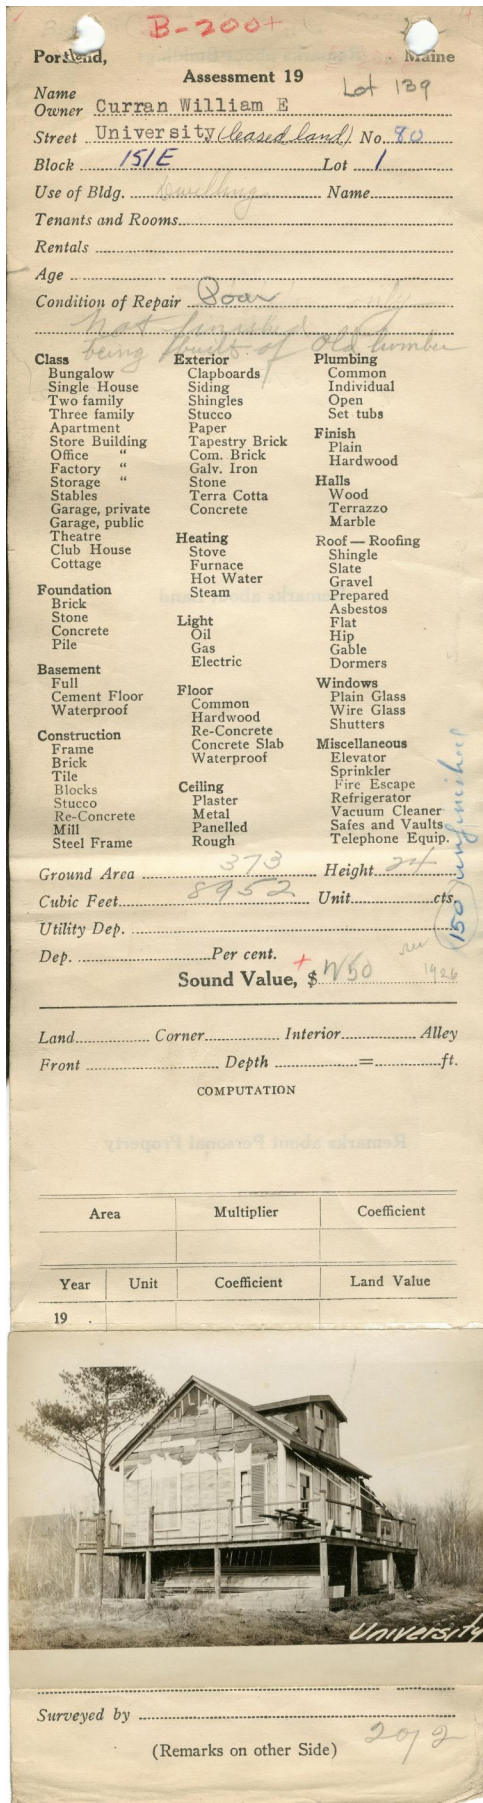 B-200+
Portland, Maine
Assessment 19
Lot 139
Name
Owner Curran William E
Street University (leased land) No. 80
Block 151E Lot 1
Use of Bldg. Dwelling Name
Tenants and Rooms
Rentals
Age
Condition of Repair Poor
Not finished
being built of Old lumber
Class
Bungalow
Single House
Two family
Three family
Apartment
Store Building
Office "
Factory "
Storage "
Stables
Garage, private
Garage, public
Theatre
Club House
Cottage
Foundation
Brick
Stone
Concrete
Pile
Basement
Full
Cement Floor
Waterproof
Construction
Frame
Brick
Tile
Blocks
Stucco
Re-Concrete
Mill
Steel Frame
Exterior
Clapboards
Siding
Shingles
Stucco
Paper
Tapestry Brick
Com. Brick
Galv. Iron
Stone
Terra Cotta
Concrete
Heating
Stove
Furnace
Hot Water
Steam
Light
Oil
Gas
Electric
Floor
Common
Hardwood
Re-Concrete
Concrete Slab
Waterproof
Ceiling
Plaster
Metal
Panelled
Rough
Plumbing
Common
Individual
Open
Set tubs
Finish
Plain
Hardwood
Halls
Wood
Terrazzo
Marble
Roof — Roofing
Shingle
Slate
Gravel
Prepared
Asbestos
Flat
Hip
Gable
Dormers
Windows
Plain Glass
Wire Glass
Shutters
Miscellaneous
Elevator
Sprinkler
Fire Escape
Refrigerator
Vacuum Cleaner
Safes and Vaults
Telephone Equip.
150 unfinished
Ground Area 373 Height 24
Cubic Feet 8952 Unit cts.
Utility Dep.
Dep. Per cent.
+ Sound Value, $ 1926
Land Corner Interior Alley
Front Depth = ft.
COMPUTATION
Remarks about Personal Property
Area Multiplier Coefficient
Year Unit Coefficient Land Value
19
University
Surveyed by
(Remarks on other Side)